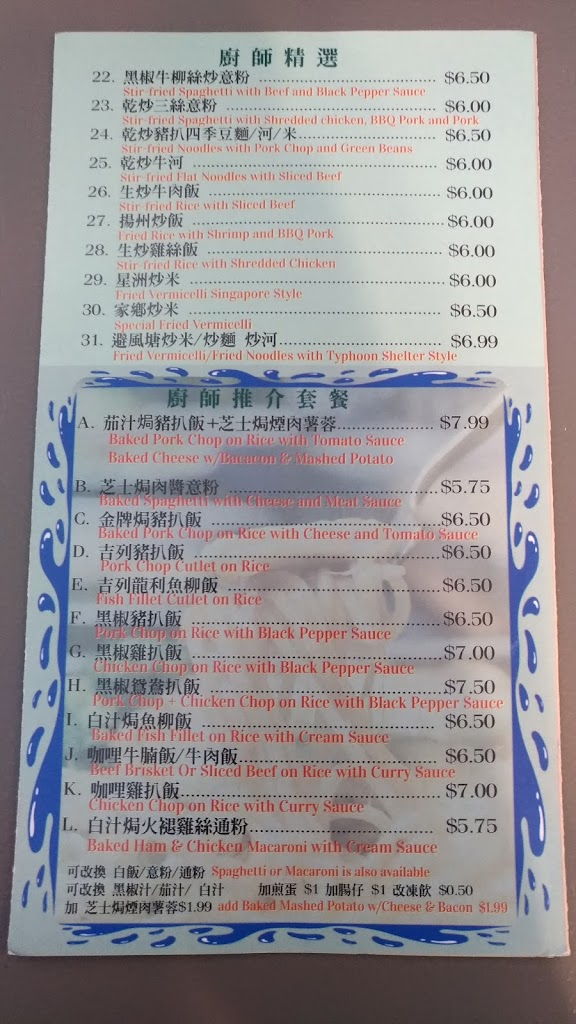 廚師精選
22. 黑椒牛柳絲炒意粉 $6.50
Stir-fried Spaghetti with Beef and Black Pepper Sauce
23. 乾炒三絲意粉 $6.00
Stir-fried Spaghetti with Shredded chicken, BBQ Pork and Pork
24. 乾炒豬扒四季豆麵/河/米 $6.50
Stir-fried Noodles with Pork Chop and Green Beans
25. 乾炒牛河 $6.00
Stir-fried Flat Noodles with Sliced Beef
26. 生炒牛肉飯 $6.00
Stir-fried Rice with Sliced Beef
27. 揚州炒飯 $6.00
Fried Rice with Shrimp and BBQ Pork
28. 生炒雞絲飯 $6.00
Stir-fried Rice with Shredded Chicken
29. 星洲炒米 $6.00
Fried Vermicelli Singapore Style
30. 家鄉炒米 $6.50
Special Fried Vermicelli
31. 避風塘炒米/炒麵 炒河 $6.99
Fried Vermicelli/Fried Noodles with Typhoon Shelter Style
廚師推介套餐
A. 茄汁焗豬扒飯+芝士焗煙肉薯蓉 $7.99
Baked Pork Chop on Rice with Tomato Sauce
Baked Cheese w/Bacacon & Mashed Potato
B. 芝士焗肉醬意粉 $5.75
Baked Spaghetti with Cheese and Meat Sauce
C. 金牌焗豬扒飯 $6.50
Baked Pork Chop on Rice with Cheese and Tomato Sauce
D. 吉列豬扒飯 $6.50
Pork Chop Cutlet on Rice
E. 吉列龍利魚柳飯 $6.50
Fish Fillet Cutlet on Rice
F. 黑椒豬扒飯 $6.50
Pork Chop on Rice with Black Pepper Sauce
G. 黑椒雞扒飯 $7.00
Chicken Chop on Rice with Black Pepper Sauce
H. 黑椒鴛鴦扒飯 $7.50
Pork Chop + Chicken Chop on Rice with Black Pepper Sauce
I. 白汁焗魚柳飯 $6.50
Baked Fish Fillet on Rice with Cream Sauce
J. 咖哩牛腩飯/牛肉飯 $6.50
Beef Brisket Or Sliced Beef on Rice with Curry Sauce
K. 咖哩雞扒飯 $7.00
Chicken Chop on Rice with Curry Sauce
L. 白汁焗火褪雞絲通粉 $5.75
Baked Ham & Chicken Macaroni with Cream Sauce
可改換 白飯/意粉/通粉 Spaghetti or Macaroni is also available
可改換 黑椒汁/茄汁/ 白汁 加煎蛋 $1 加腸仔 $1 改凍飲 $0.50
加 芝士焗煙肉薯蓉$1.99 add Baked Mashed Potato w/Cheese & Bacon $1.99